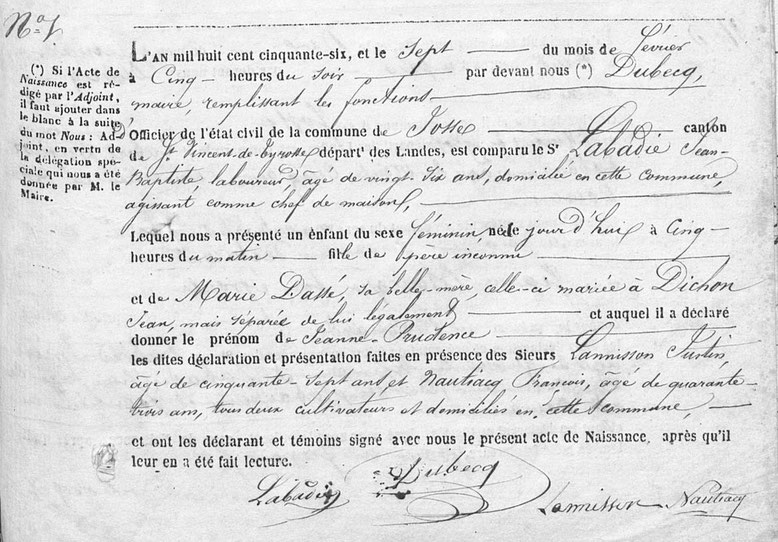 N.º 7
(*) Si l'Acte de
Naissance est ré-
digé par l'Adjoint,
il faut ajouter dans
le blanc à la suite
du mot Nous : Ad-
joint, en vertu de
la délégation spé-
ciale qui nous a été
donnée par M. le
Maire.
L'AN mil huit cent cinquante-six, et le Sept du mois de février
à Cinq heures du soir par devant nous (*) Dubecq,
maire, remplissant les fonctions
d'Officier de l'état civil de la commune de Josse canton
de St Vincent-de-Tyrosse départt des Landes, est comparu le Sr Labadie Jean-
Baptiste, laboureur, âgé de vingt-six ans, domicilié en cette commune,
agissant comme chef de maison,
Lequel nous a présenté un enfant du sexe féminin, née le jour d'hui à Cinq
heures du matin fille de père inconnu
et de Marie Dassé, sa belle-mère, celle-ci mariée à Dichon
Jean, mais séparée de lui légalement et auquel il a déclaré
donner le prénom de Jeanne-Prudence
les dites déclaration et présentation faites en présence des Sieurs Lannisson Justin,
âgé de cinquante-sept ans et Nautiacq François, âgé de quarante-
trois ans, tous deux cultivateurs et domiciliés en cette commune,
et ont les déclarant et témoins signé avec nous le présent acte de Naissance, après qu'il
leur en a été fait lecture.
Dubecq
Labadie Lannisson Nautiacq